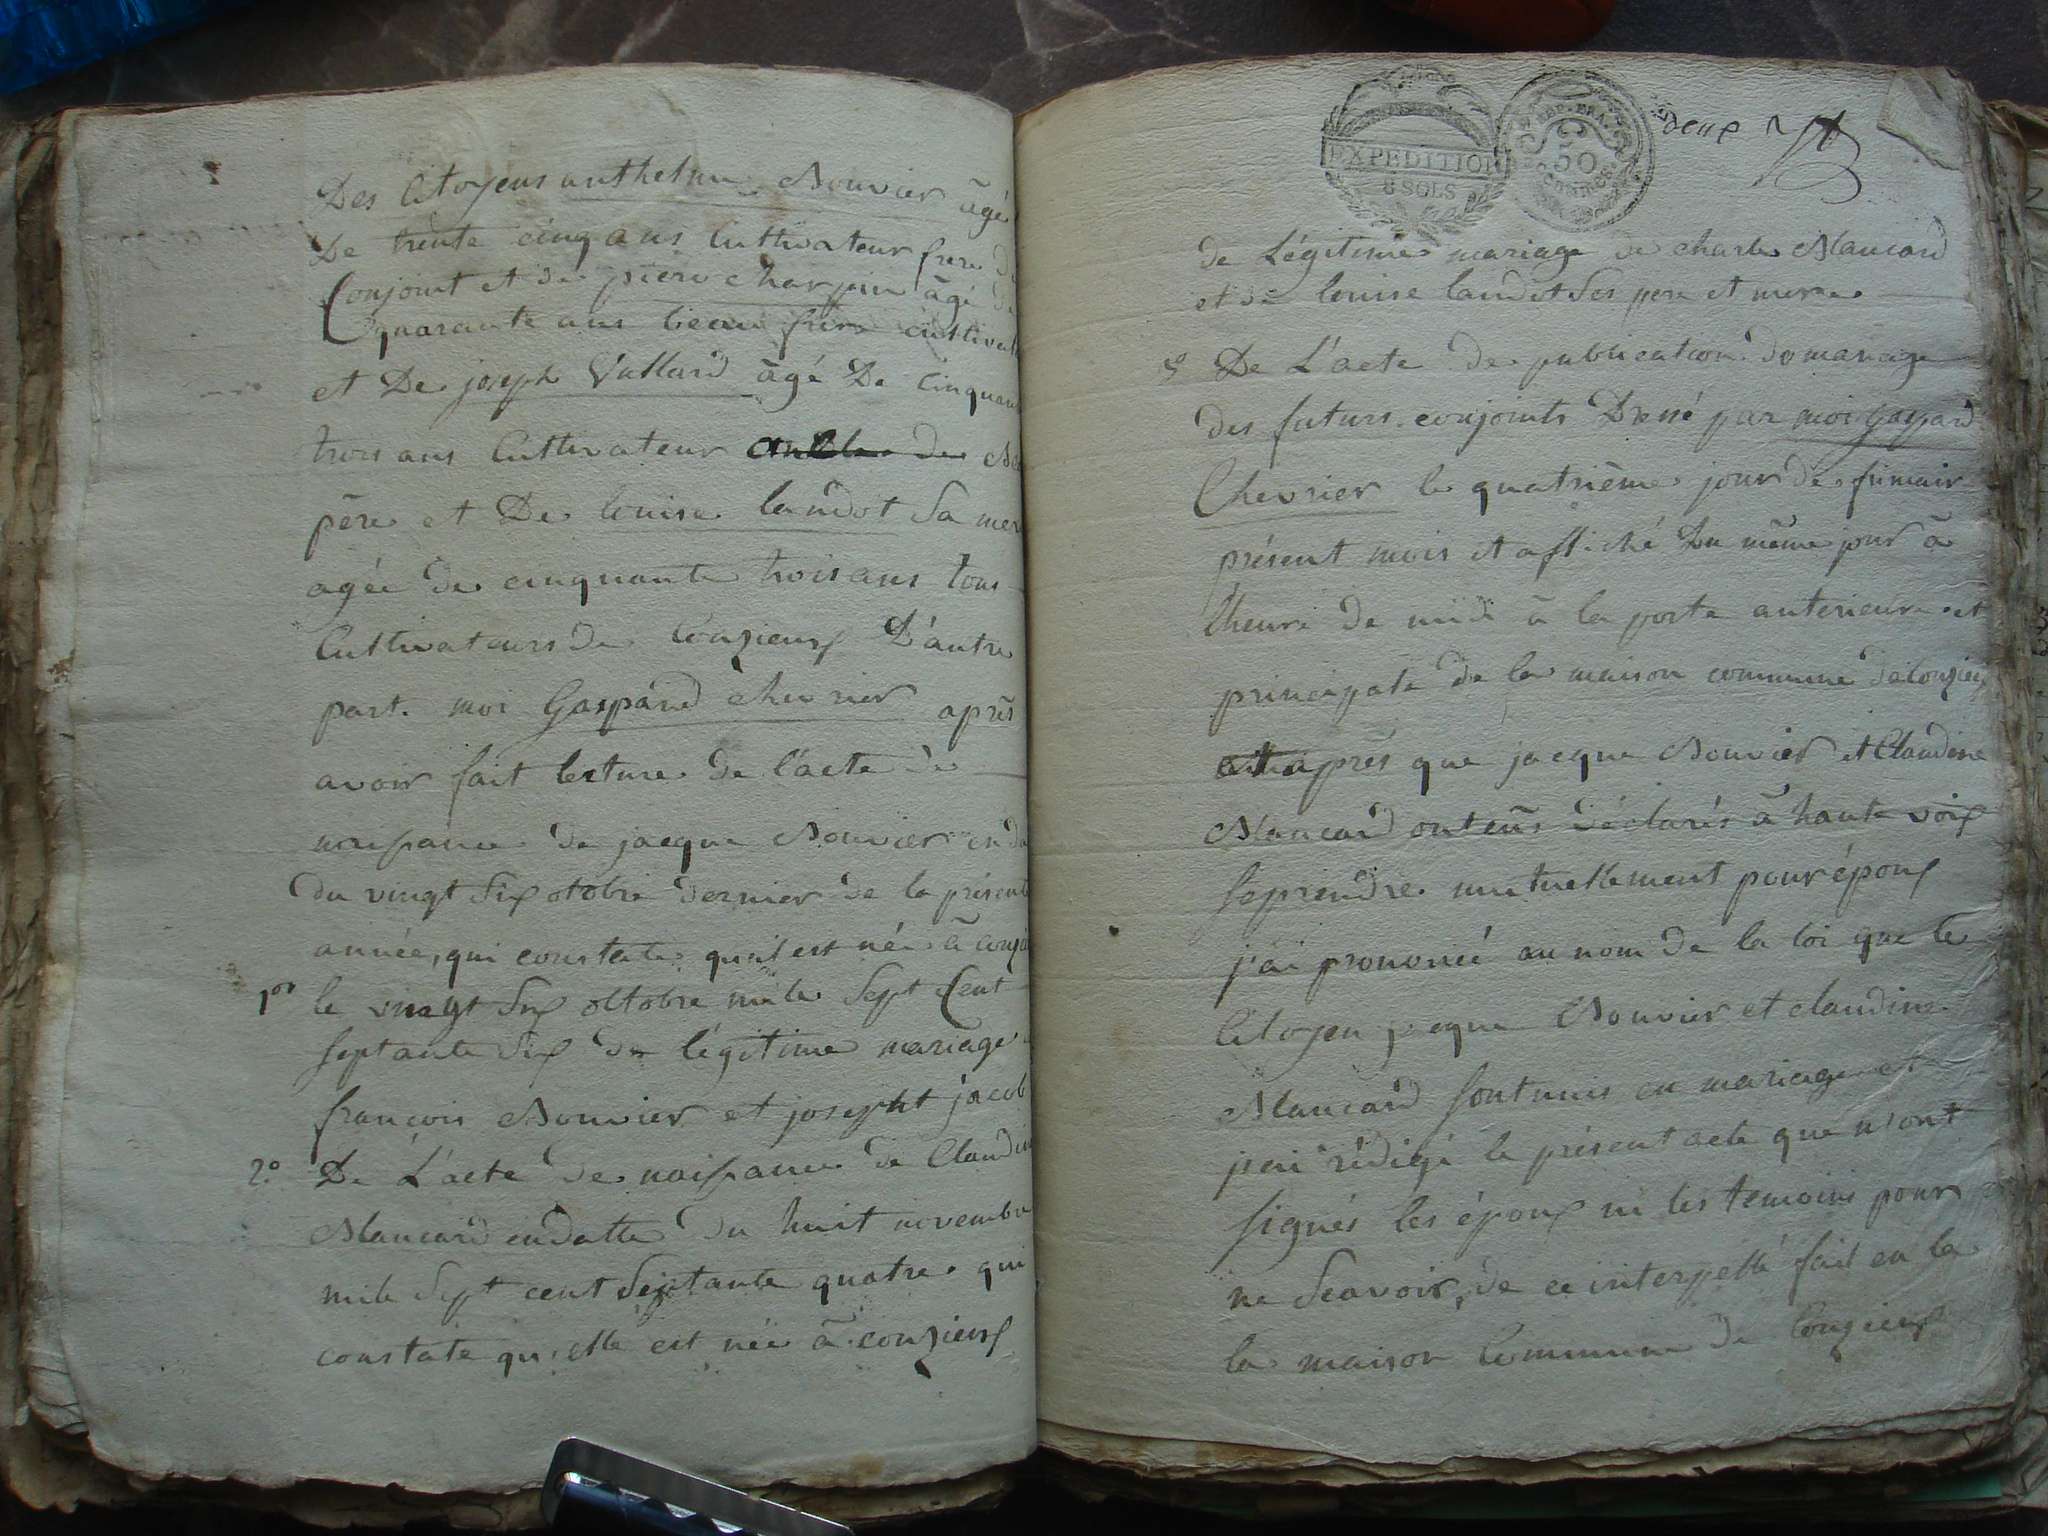 Des Citoyens anthelme Bouvier âgé
De trente cinq ans Cultivateur frere du
Conjoint et de pierre charpin âgé de
quarante ans beau frere cultivat
et De joseph Vallard âgé De Cinquan
trois ans Cultivateur de
père et De louise landot Sa mer
agée de cinquante trois ans tous
Cultivateurs de Conzieux D'autre
part. moi Gaspard chevrier après
avoir fait lecture de l'acte de
naissance de jacque Bouvier en da
du vingt Six otobre dernier de la présente
année, qui constate qu'il est née à conzi
1er le vingt Six octobre mile Sept Cent
septante Six de légitime mariage
françois Bouvier et josepht jacob
2º De L'acte de naissance de Claudin
Mancard en datte du huit novembre
mile Sept cent Septante quatre qui
constate qu'elle est née à conzieux
EXPEDITION
8 SOLS
REP. FRA.
50
CENTIMES
deux
de Légitime mariage de charle Mancard
et de louise landot Ses pere et mere
De L'acte de publication de mariage
des futurs conjoints Dressé par moi Gaspard
Chevrier le quatrième jour de frimair
présent mois et affiché Du même jour à
l'heure de midi à la porte anterieure et
principale de la maison commune de conzieu
après que jacque Bouvier et Claudine
Mancard ont eûs déclarés à haute voix
se prendre mutuellement pour époux
j'ai prononcé au nom de la loi que le
Citoyen jacque Bouvier et claudine
Mancard sont unis en mariage et
j'ai rédigé le présent acte que n'ont
signés les époux ni les temoins pour
ne Scavoir, de ce interpellé fait en la
la maison Commune de Conzieux